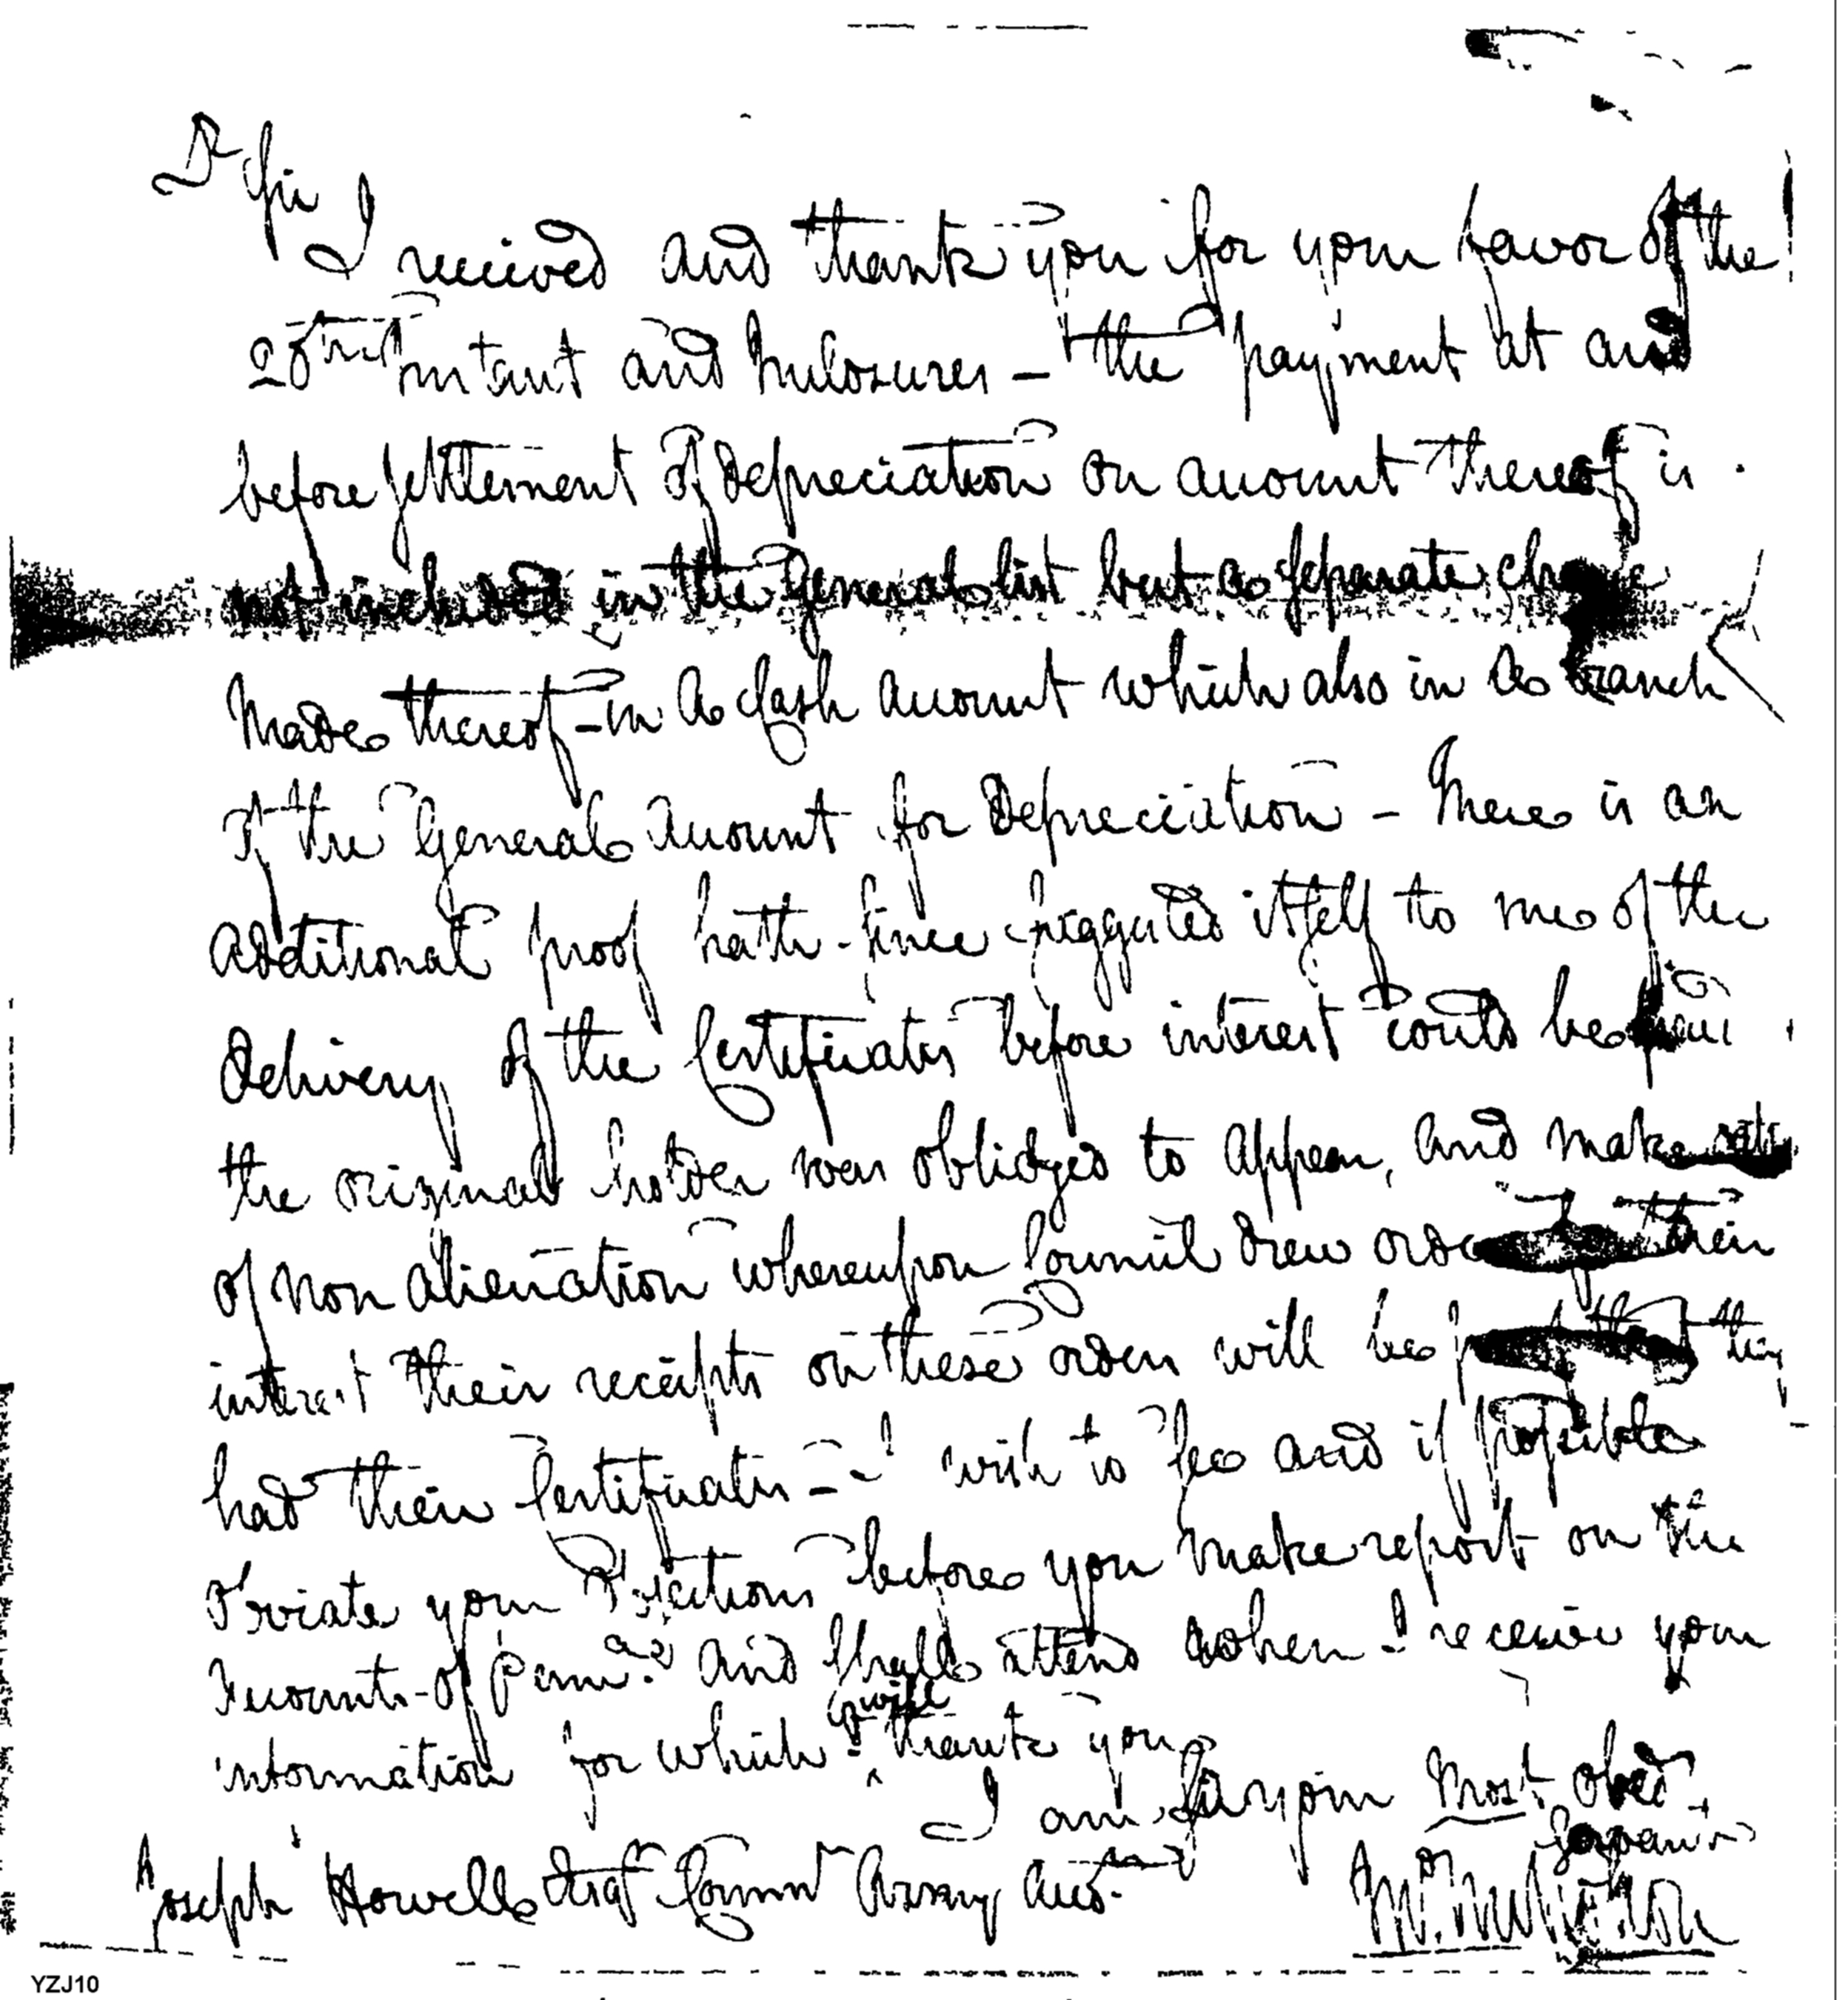 Dr Sir
I recieved and thank you for your favor of the
28th Instant and Inclosures - the payment at and
before settlement of depreciation on account thereof is
not included in the General list but a separate charge
Made thereof - in a Cash account which also in a branch
of the General account for Depreciation - There is an
additional proof hath since suggested itself to me of the
delivery of the Certificates before interest could be paid
the original holder was oblidged to appear, and make
of Non alienation whereupon Council drew orders for their
interest their receipts on these orders will be proof that they
had their Certificates - I wish to see and if possible
obviate your Objections before you make report on the
Accounts of Penns.a and shall attend when I receive your
information for which I will thank you
I am Sir your Most obed
Servant
Joseph Howell Esqr Commr Army Accts.
Jno. Nicholson
YZJ10